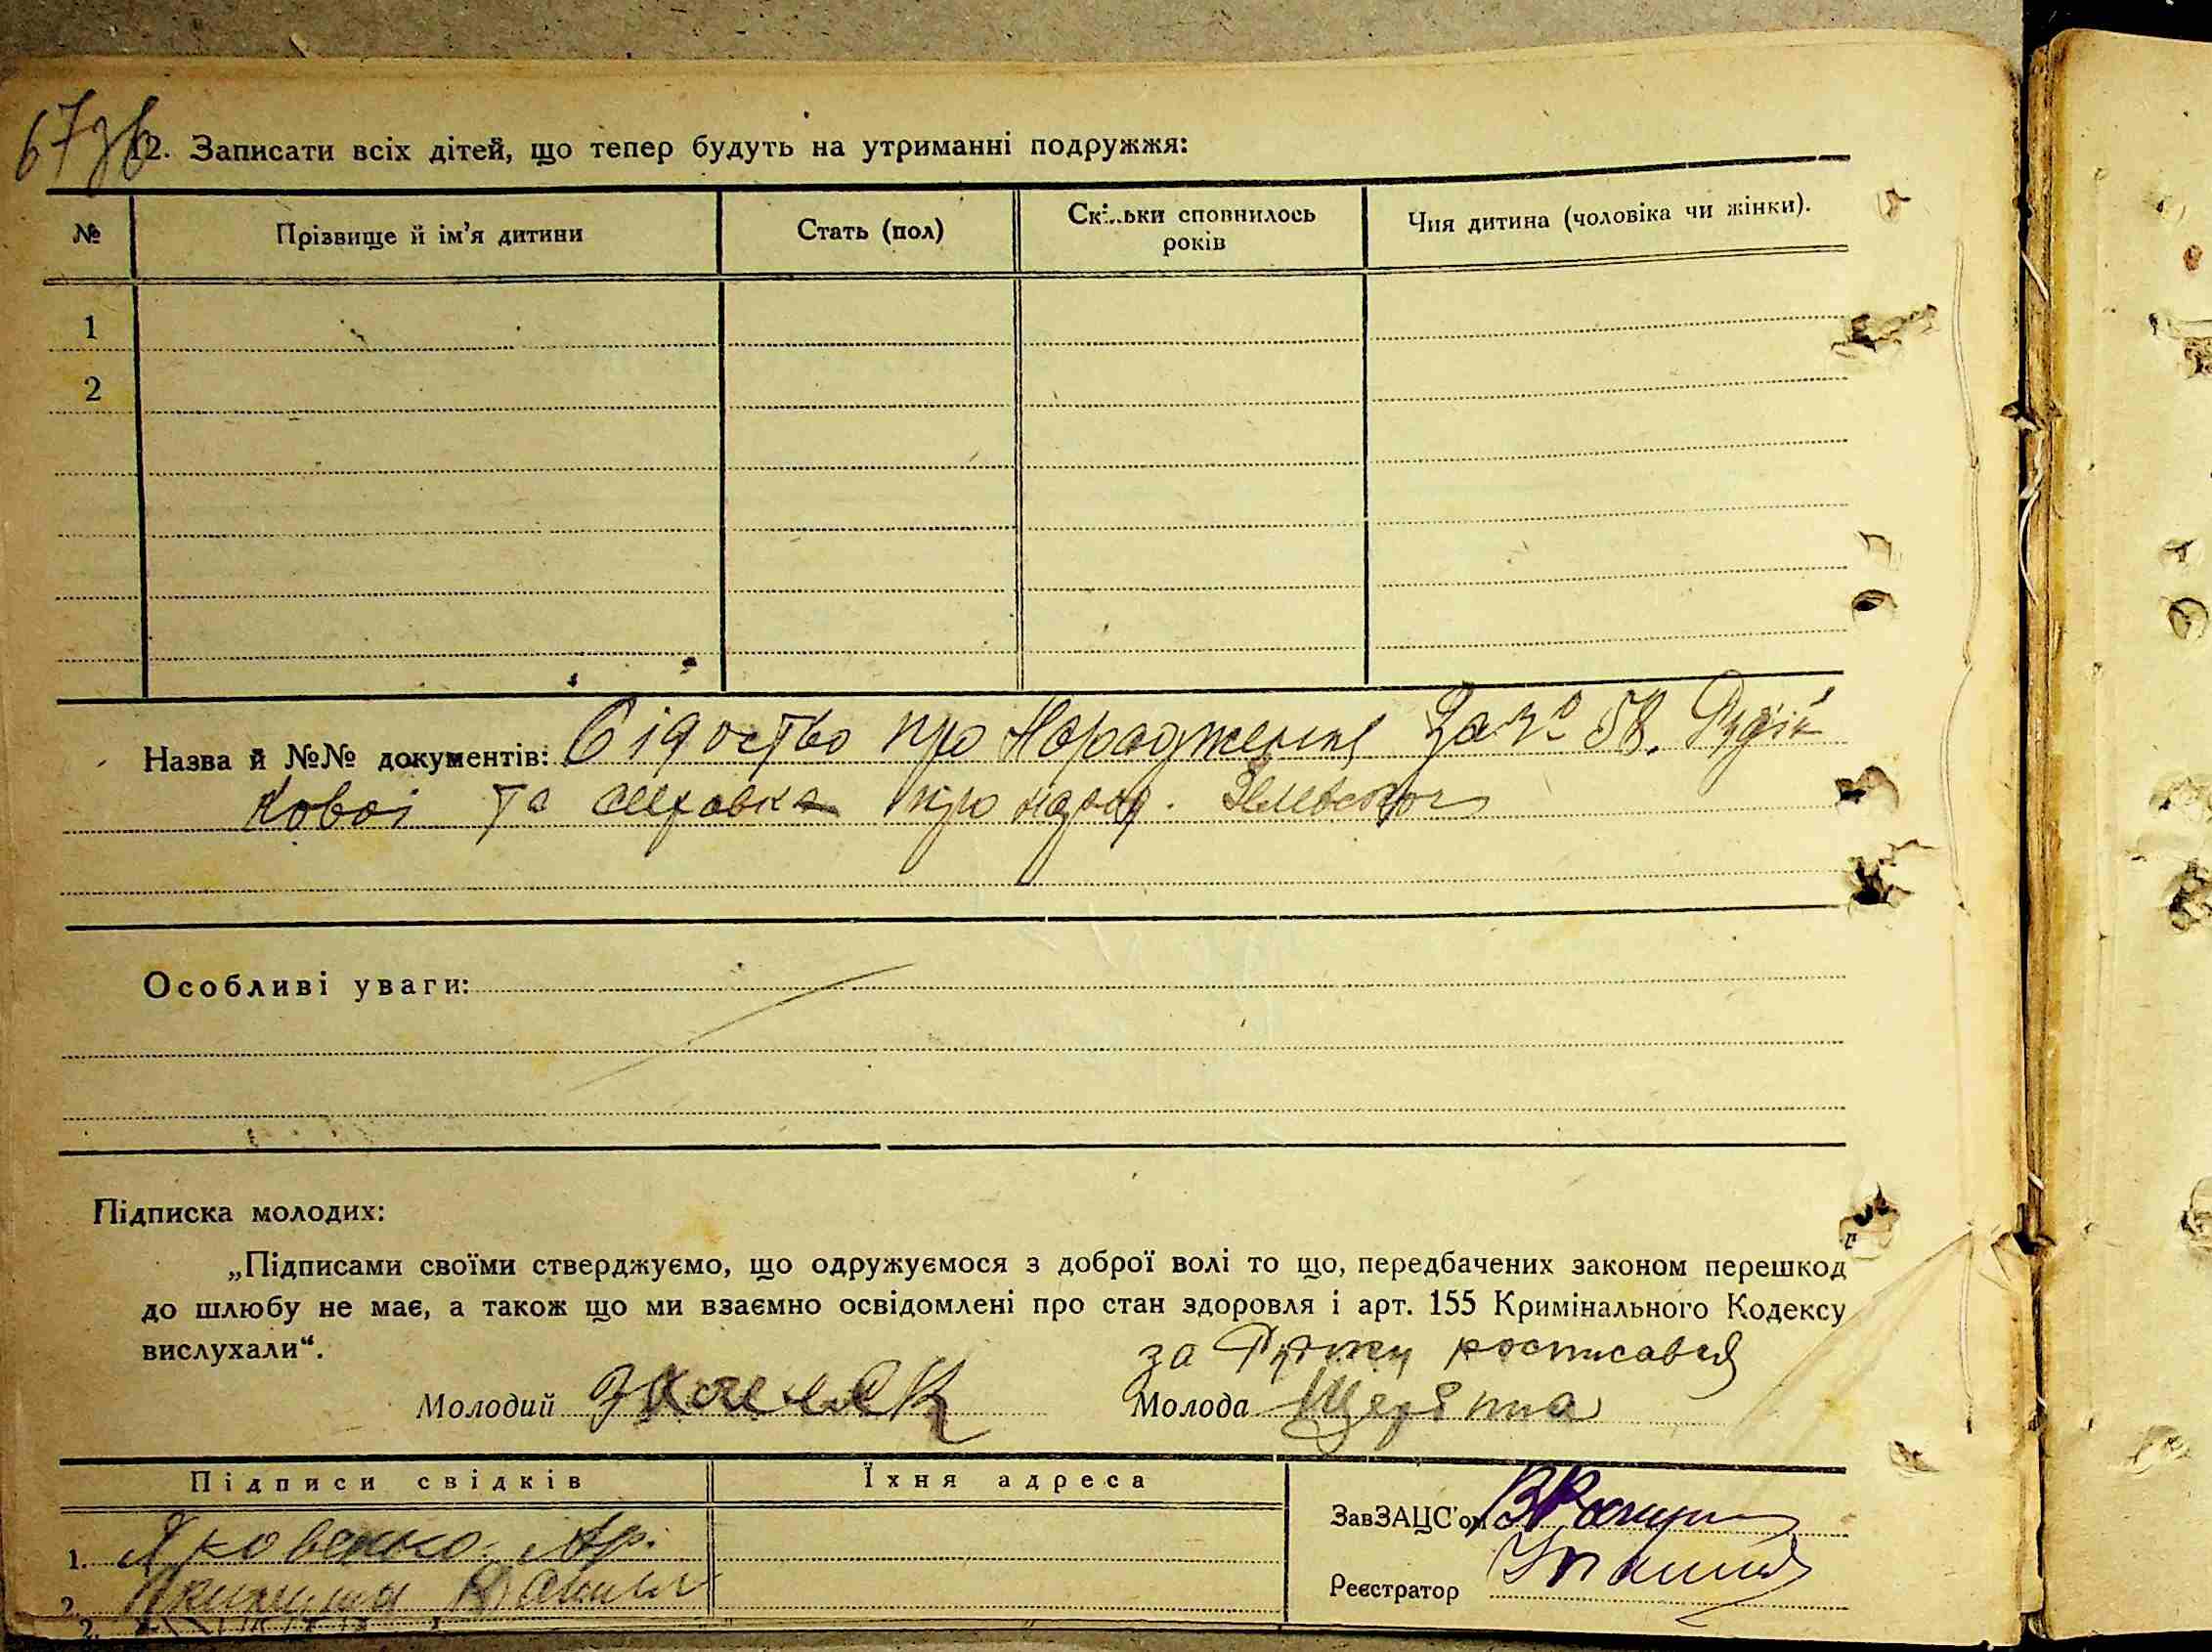 67зв
12. Записати всіх дітей, що тепер будуть на утриманні подружжя:
№ Прізвище й ім’я дитини Стать (пол) Скільки сповнилось років Чия дитина (чоловіка чи жінки).
1
2
Назва й №№ документів: про Народження За № 58.
кової та справка про народ.
Особливі уваги:
Підписка молодих:
„Підписами своїми стверджуємо, що одружуємося з доброї волі то що, передбачених законом перешкод
до шлюбу не має, а також що ми взаємно освідомлені про стан здоровля і арт. 155 Кримінального Кодексу
вислухали“.
за росписався
Молодий Молода
Підписи свідків Їхня адреса
ЗавЗАЦС’ом
1. Яковенко
Реєстратор
2.
2.